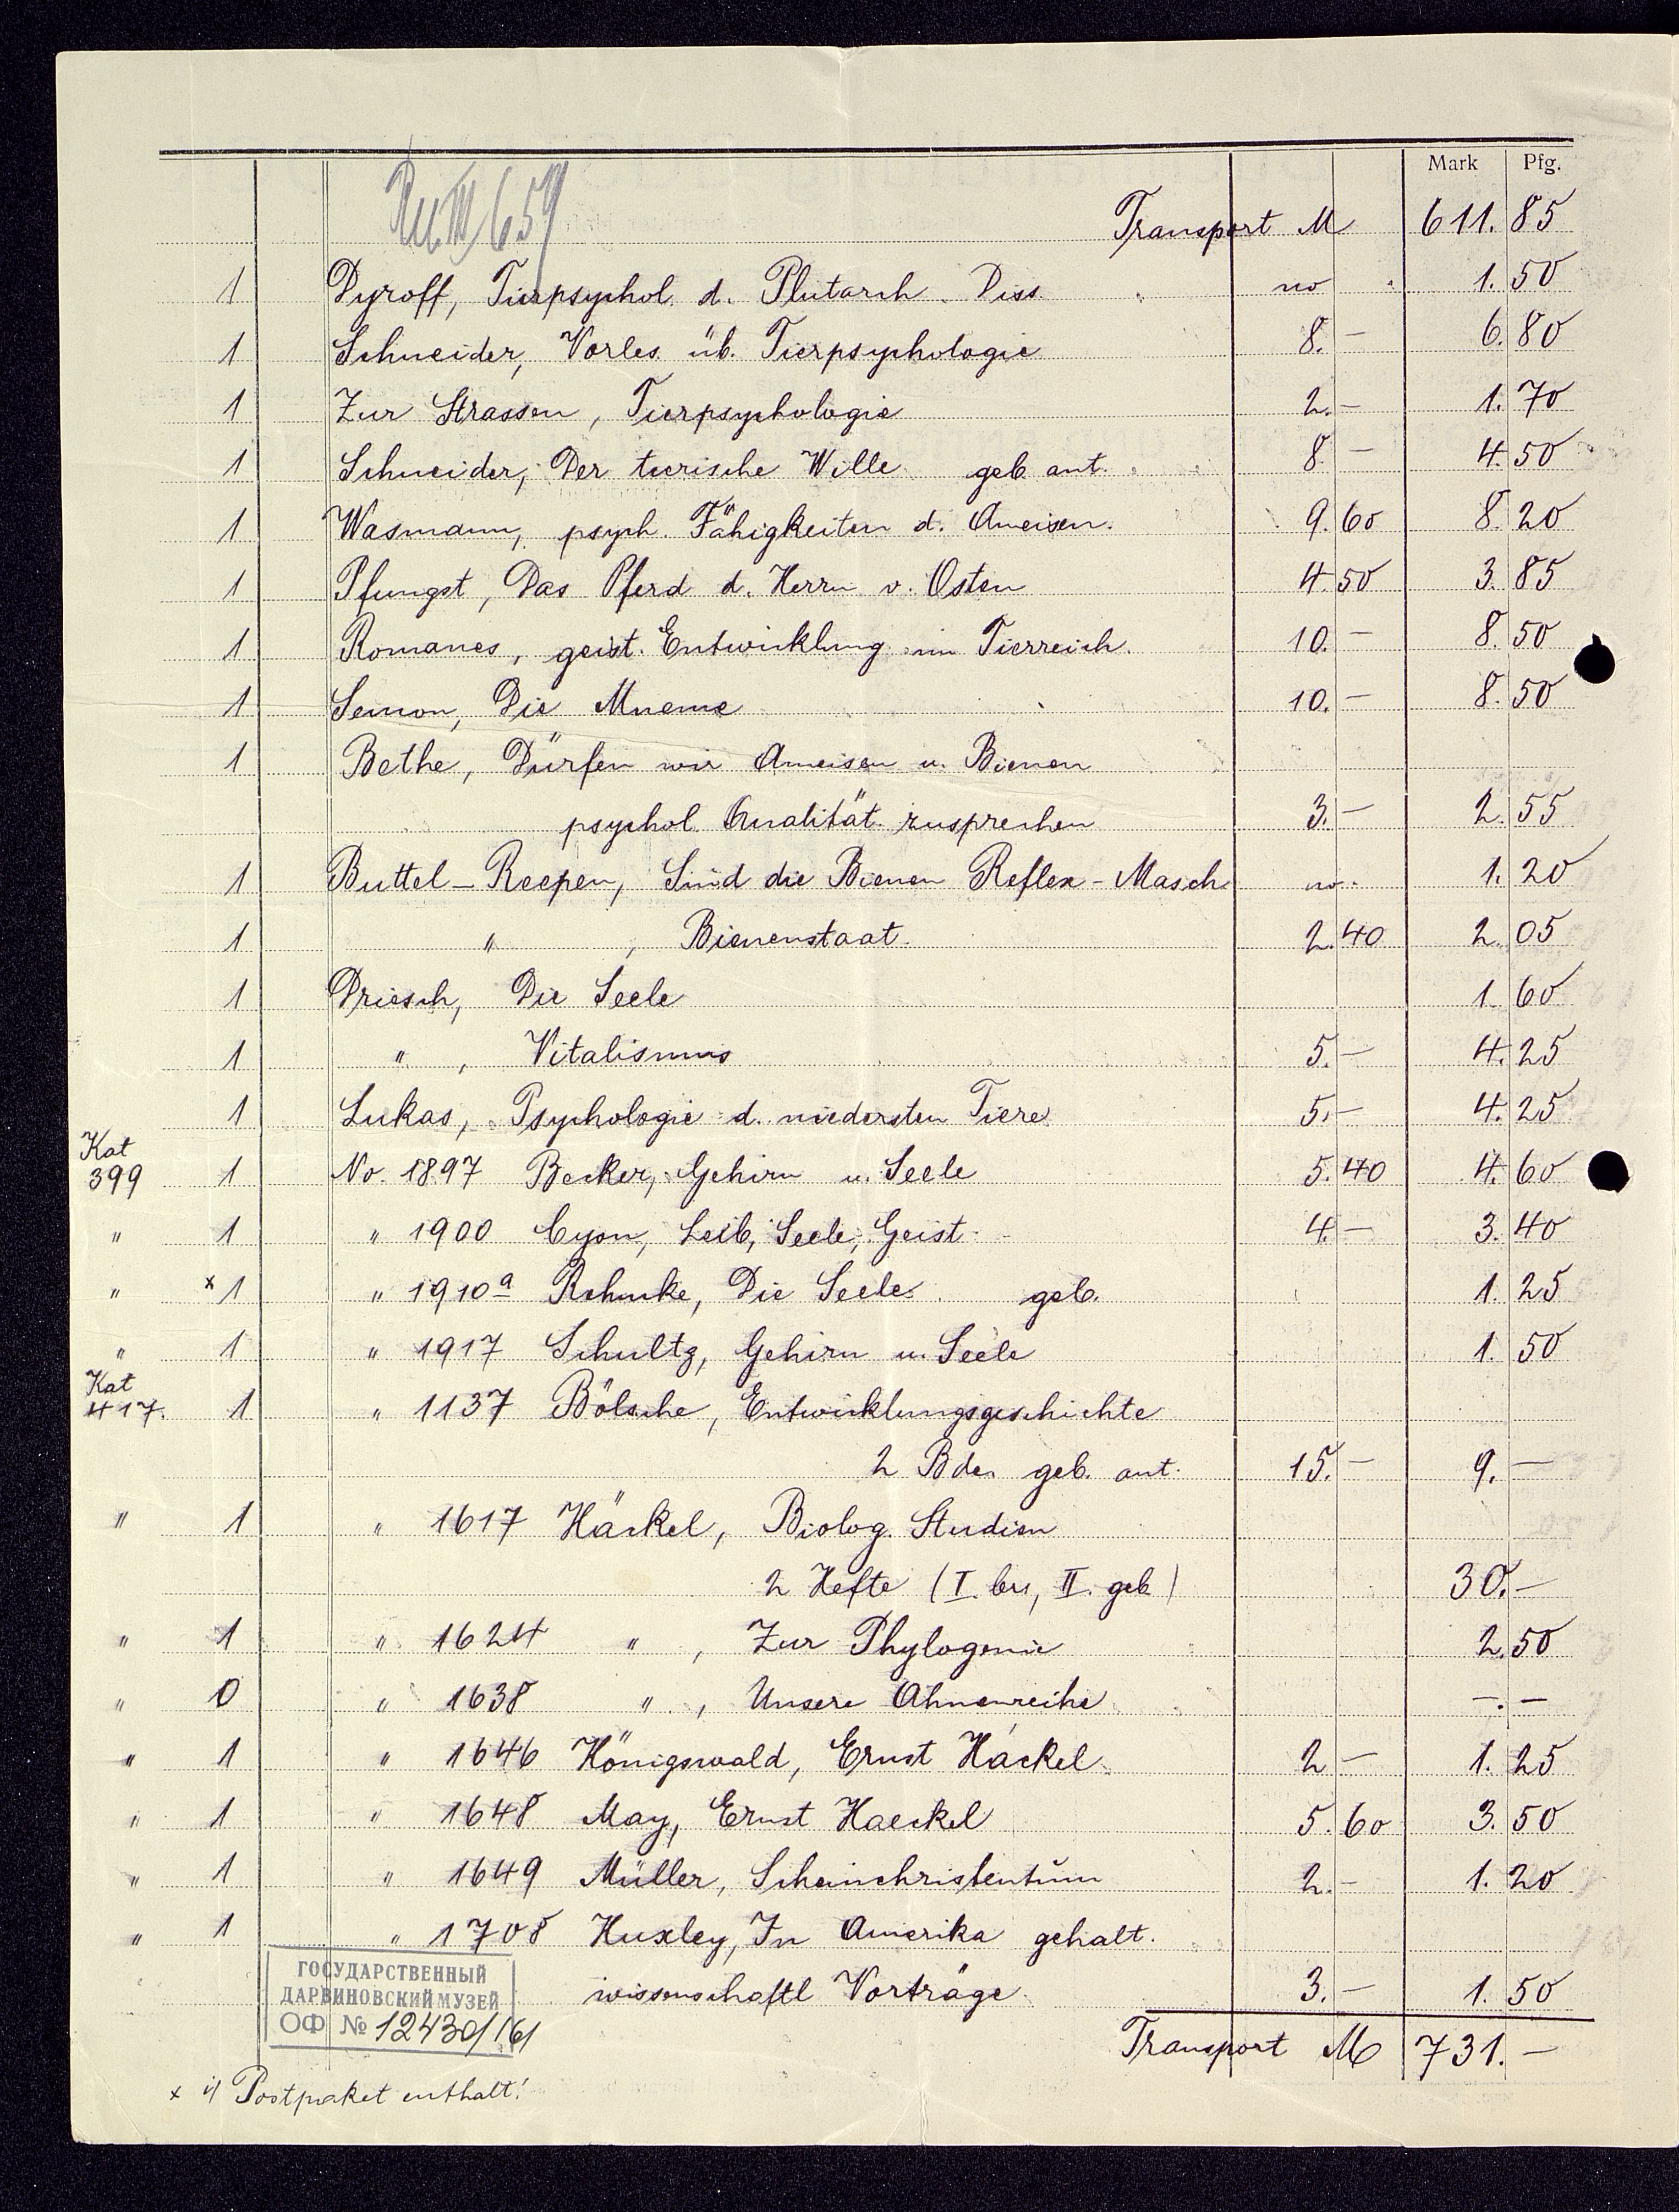 Mark Pfg.
Ru III 659
Transport M 611. 85
1 Dyroff, Tierpsychol. d. Plutarch. Diss. no 1. 50
1 Schneider, Vorles. üb. Tierpsychologie 8. — 6. 80
1 Zur Strassen, Tierpsychologie 2. — 1. 70
1 Schneider, Der tierische Wille geb. ant. 8. — 4. 50
1 Wasmann, psych. Fähigkeiten d. Ameisen. 9. 60 8. 20
1 Pfungst, Das Pferd d. Herrn v. Osten 4. 50 3. 85
1 Romanes, geist. Entwicklung im Tierreich. 10. — 8. 50
1 Semon, Die Mneme 10. — 8. 50
1 Bethe, Dürfen wir Ameisen u. Bienen
psychol. Qualität. zusprechen 3. — 2. 55
1 Buttel-Reepen, Sind die Bienen Reflex-Masch. no. 1. 20
1 " , Bienenstaat. 2. 40 2. 05
1 Driesch, Die Seele 1. 60
1 " , Vitalismus 5. — 4. 25
1 Lukas, Psychologie d. niedersten Tiere 5. — 4. 25
Kat
399 1 No. 1897 Becker, Gehirn u. Seele 5. 40 4. 60
" 1 " 1900 Cyon, Leib, Seele, Geist 4. — 3. 40
" x 1 " 1910a Rehmke, Die Seele. geb. 1. 25
" 1 " 1917 Schultz, Gehirn u. Seele 1. 50
Kat
417. 1 " 1137 Bölsche, Entwicklungsgeschichte
2 Bde. geb. ant. 15. — 9. —
" 1 " 1617 Häckel, Biolog. Studien
2 Hefte (I. br, II. geb) 30. —
" 1 " 1624 " , Zur Phylogenie 2. 50
" 0 " 1638 " , Unsere Ahnenreihe —. —
" 1 " 1646 Königswald, Ernst Häckel 2 — 1. 25
" 1 " 1648 May, Ernst Haeckel 5. 60 3. 50
" 1 " 1649 Müller, Scheinchristentum 2. — 1. 20
" 1 " 1708 Huxley, In Amerika gehalt.
wissenschaftl Vorträge 3. — 1. 50
ГОСУДАРСТВЕННЫЙ
ДАРВИНОВСКИЙ МУЗЕЙ
ОФ № 12430/161
Transport M 731. —
x Postpaket enthalt!